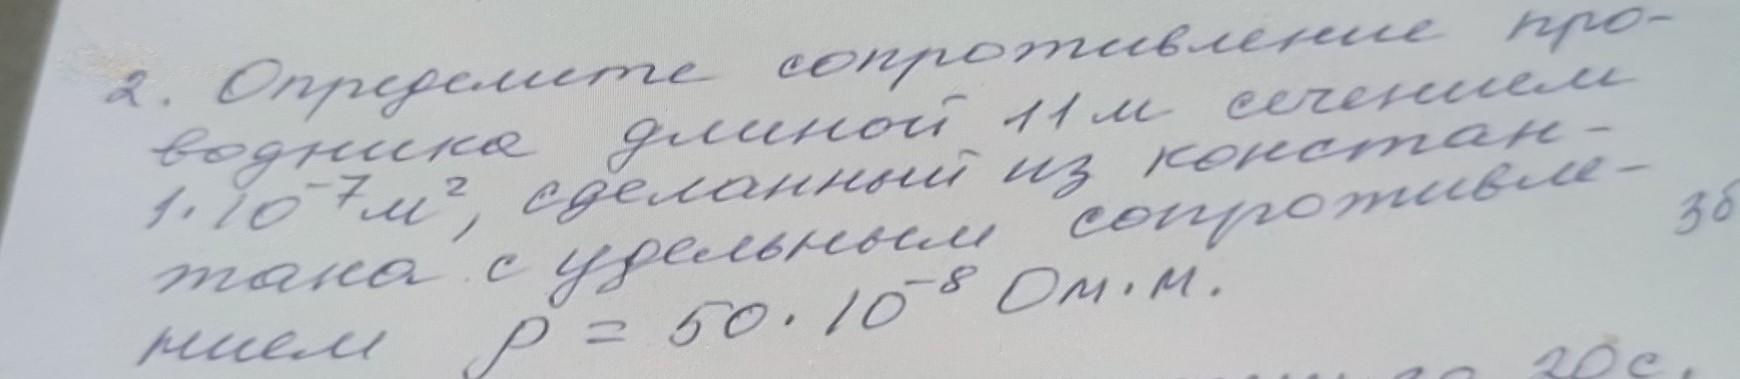 2. Определите сопротивление про-
водника длиной 11 м сечением
1·10⁻⁷ м², сделанный из констан-
тана с удельным сопротивле-
3б
нием ρ = 50·10⁻⁸ Ом·м.
20с.